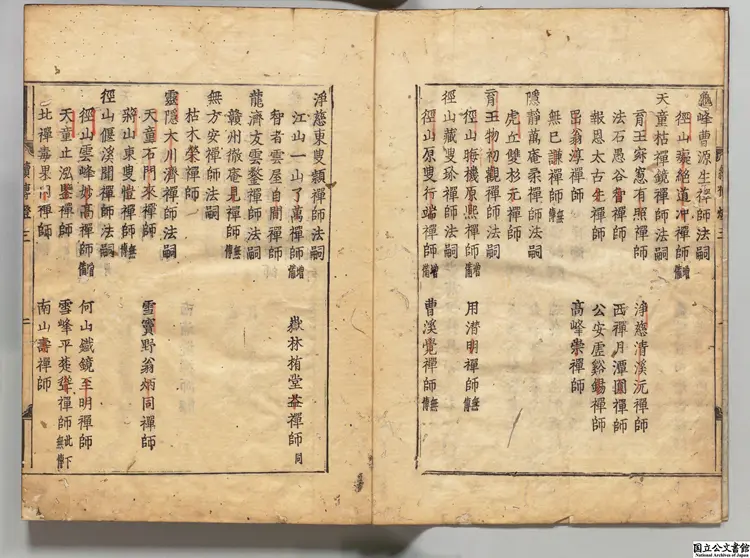 龜峰曹源生禪師法嗣
徑山癡絕道冲禪師增備
天童枯禪鏡禪師法嗣
育王寂窻有照禪師 淨慈清溪沅禪師
法石愚谷智禪師 西禪月潭圓禪師
報恩太古先禪師 公安虛谿錫禪師
淳禪師 高峰崇禪師
無巳謙禪師無傳
隱靜萬庵柔禪師法嗣
虎丘雙杉元禪師
育王物初觀禪師法嗣
徑山晦機原熙禪師增備 用潜明禪師無傳
徑山藏叟珍禪師法嗣
徑山原叟行端禪師增備 曹溪覺禪師無傳
淨慈東叟頴禪師法嗣
江山一山了萬禪師增備 嶽林栯堂益禪師同
智者雲屋自閒禪師
龍濟友雲鍪禪師法嗣
贑州徹庵見禪師無傳
無方安禪師法嗣
枯木榮禪師
靈隱大川濟禪師法嗣
天童石門來禪師 雪竇野翁炳同禪師
蔣山東叟愷禪師無傳
徑山偃溪聞禪師法嗣
徑山雲峰妙高禪師增備 何山鐵鏡至明禪師
天童止泓鑒禪師 雪峰平楚聳禪師此下無傳
北禪毒果因禪師 南山壽禪師
續傳燈 三
二
国立公文書館
National Archives of Japan